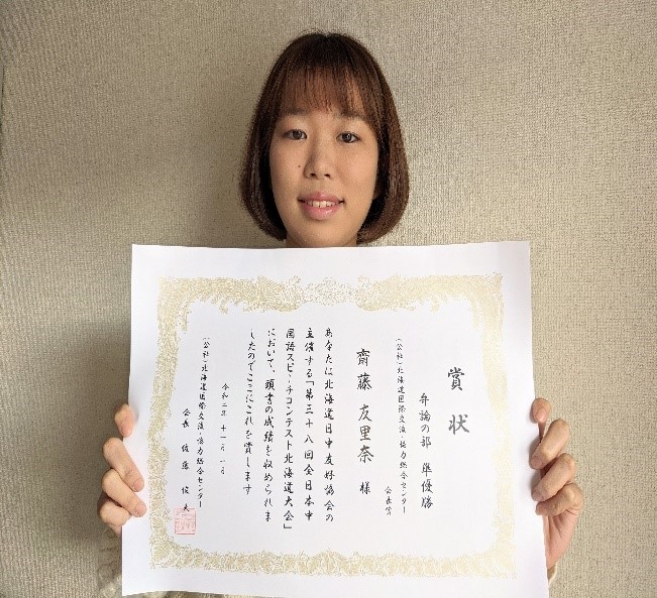 賞状
弁論の部 準優勝
(公社)北海道国際交流・協力総合センター
会長賞
齊藤 友里奈 様
あなたは北海道日中友好協会の
主催する「第三十八回全日本中
国語スピーチコンテスト北海道大会」
において、頭書の成績を収められま
したのでここにこれを賞します
令和二年 十一月 一日
(公社)北海道国際交流・協力総合センター
会長 佐藤 俊夫